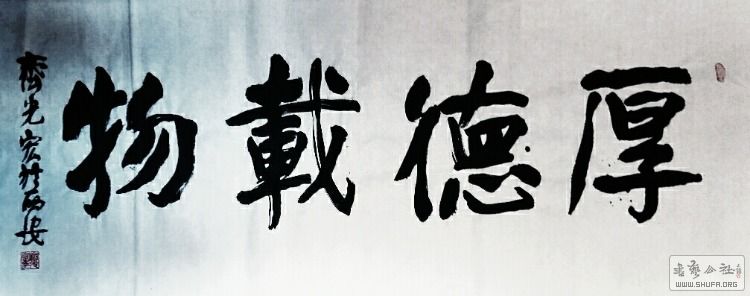 厚德載物
齊光宏於西安
書藝公社
WWW.SHUFA.ORG